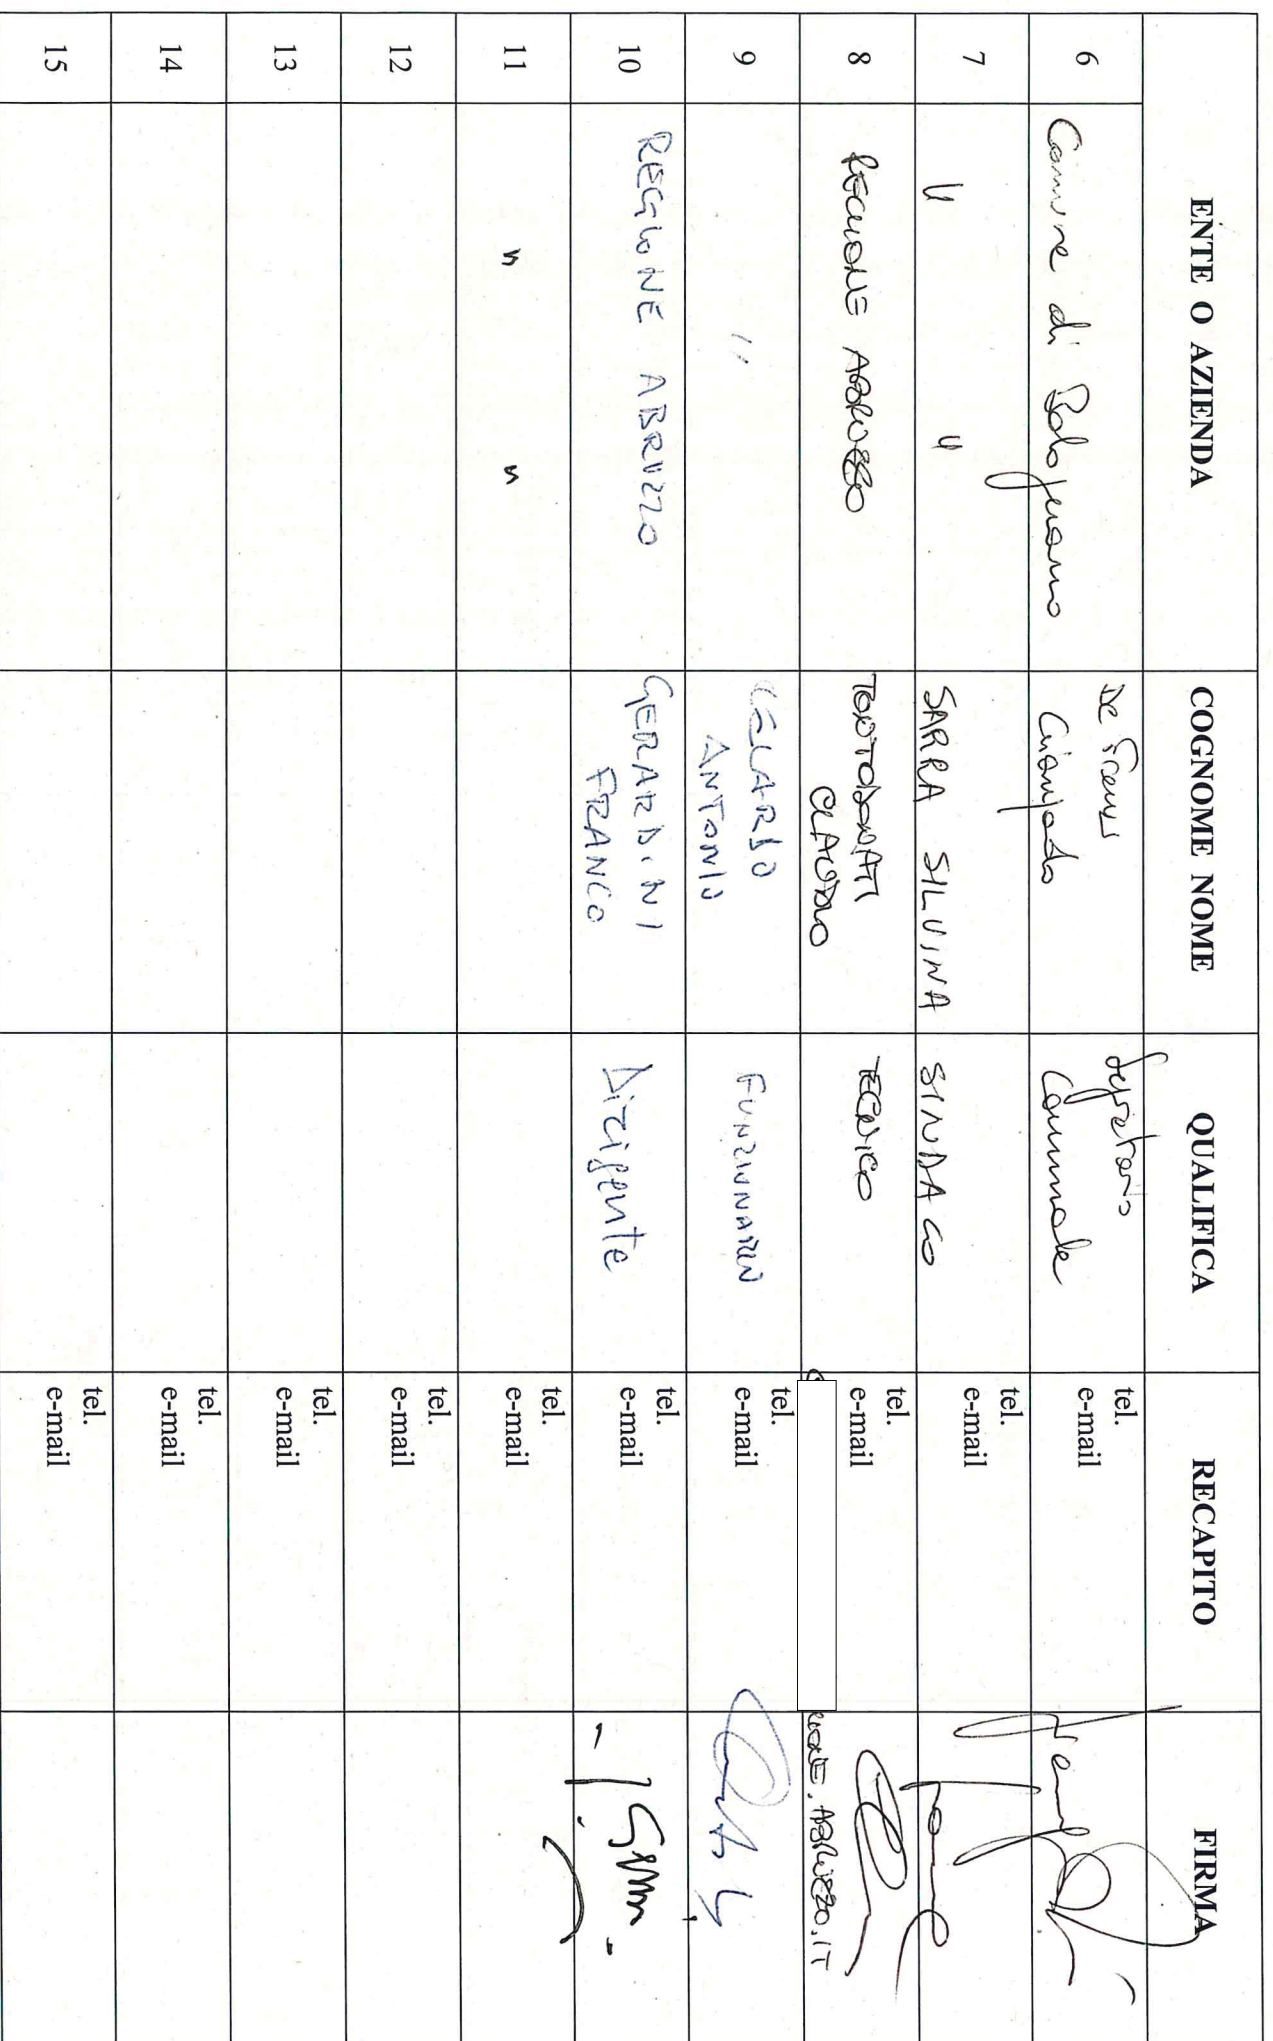 ENTE O AZIENDA COGNOME NOME QUALIFICA RECAPITO FIRMA
6 Comune di Bolognano De Francesco Segretario tel.
Comunale e-mail
7 " " SARRA SILVINA SINDACO tel.
e-mail
8 REGIONE ABRUZZO TONTODONATI TECNICO tel.
CLAUDIO e-mail
.ABRUZZO.IT
9 " CELARDO FUNZIONARIO tel.
ANTONIO e-mail
10 REGIONE ABRUZZO GERARDINI Dirigente tel.
FRANCO e-mail
11 " " tel.
e-mail
12 tel.
e-mail
13 tel.
e-mail
14 tel.
e-mail
15 tel.
e-mail